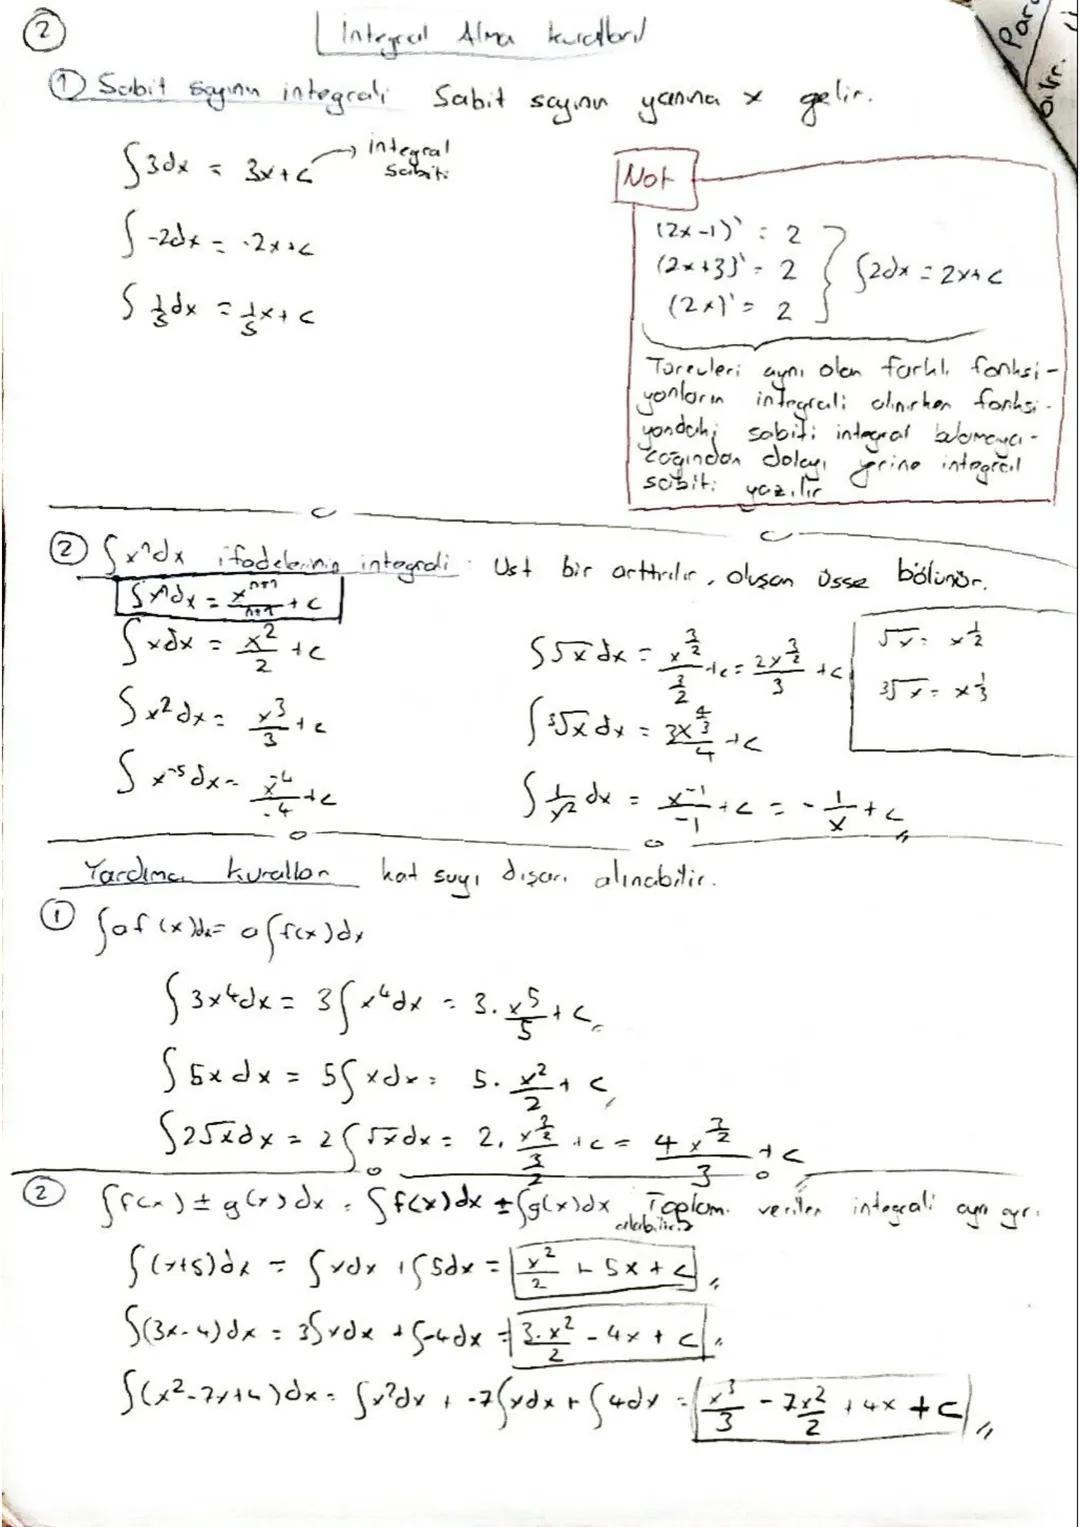 2
Integral Alma kuralları
① Sabit sayının integrali Sabit sayının yanına x gelir.
∫3dx = 3x+c → integral sabiti
∫-2dx = -2x+c
∫1/5 dx = 1/5 x+c
Not
(2x-1)' = 2
(2x+3)' = 2 } ∫2dx = 2x+c
(2x)' = 2
Türevleri aynı olan farklı fonksi-
yonların integrali alınırken fonksi-
yondaki sabiti integral bulamaya-
cağından dolayı yerine integral
sabiti yazılır
② ∫xⁿdx ifadelerinin integrali: Üst bir arttırılır, oluşan üsse bölünür.
∫xⁿdx = x^(n+1)/(n+1) + c
∫xdx = x²/2 + c
∫x²dx = x³/3 + c
∫x⁻⁵dx = x⁻⁴/-4 + c
∫√x dx = x^(3/2)/(3/2) + c = 2x^(3/2)/3 + c
∫³√x dx = 3x^(4/3)/4 + c
∫1/x² dx = x⁻¹/-1 + c = -1/x + c
√x = x^(1/2)
³√x = x^(1/3)
Yardımcı kurallar kat sayı dışarı alınabilir.
① ∫af(x)dx = a∫f(x)dx
∫3x⁴dx = 3∫x⁴dx = 3. x⁵/5 + c
∫5xdx = 5∫xdx = 5. x²/2 + c
∫2√x dx = 2∫√x dx = 2. x^(3/2)/(3/2) + c = 4x^(3/2)/3 + c
② ∫f(x) ± g(x)dx = ∫f(x)dx ± ∫g(x)dx Toplam verilen integrali ayrı ayrı
alabiliriz
∫(x+5)dx = ∫xdx + ∫5dx = x²/2 + 5x + c
∫(3x-4)dx = 3∫xdx + ∫-4dx = 3.x²/2 - 4x + c
∫(x²-7x+4)dx = ∫x²dx + -7∫xdx + ∫4dx = x³/3 - 7x²/2 + 4x + c